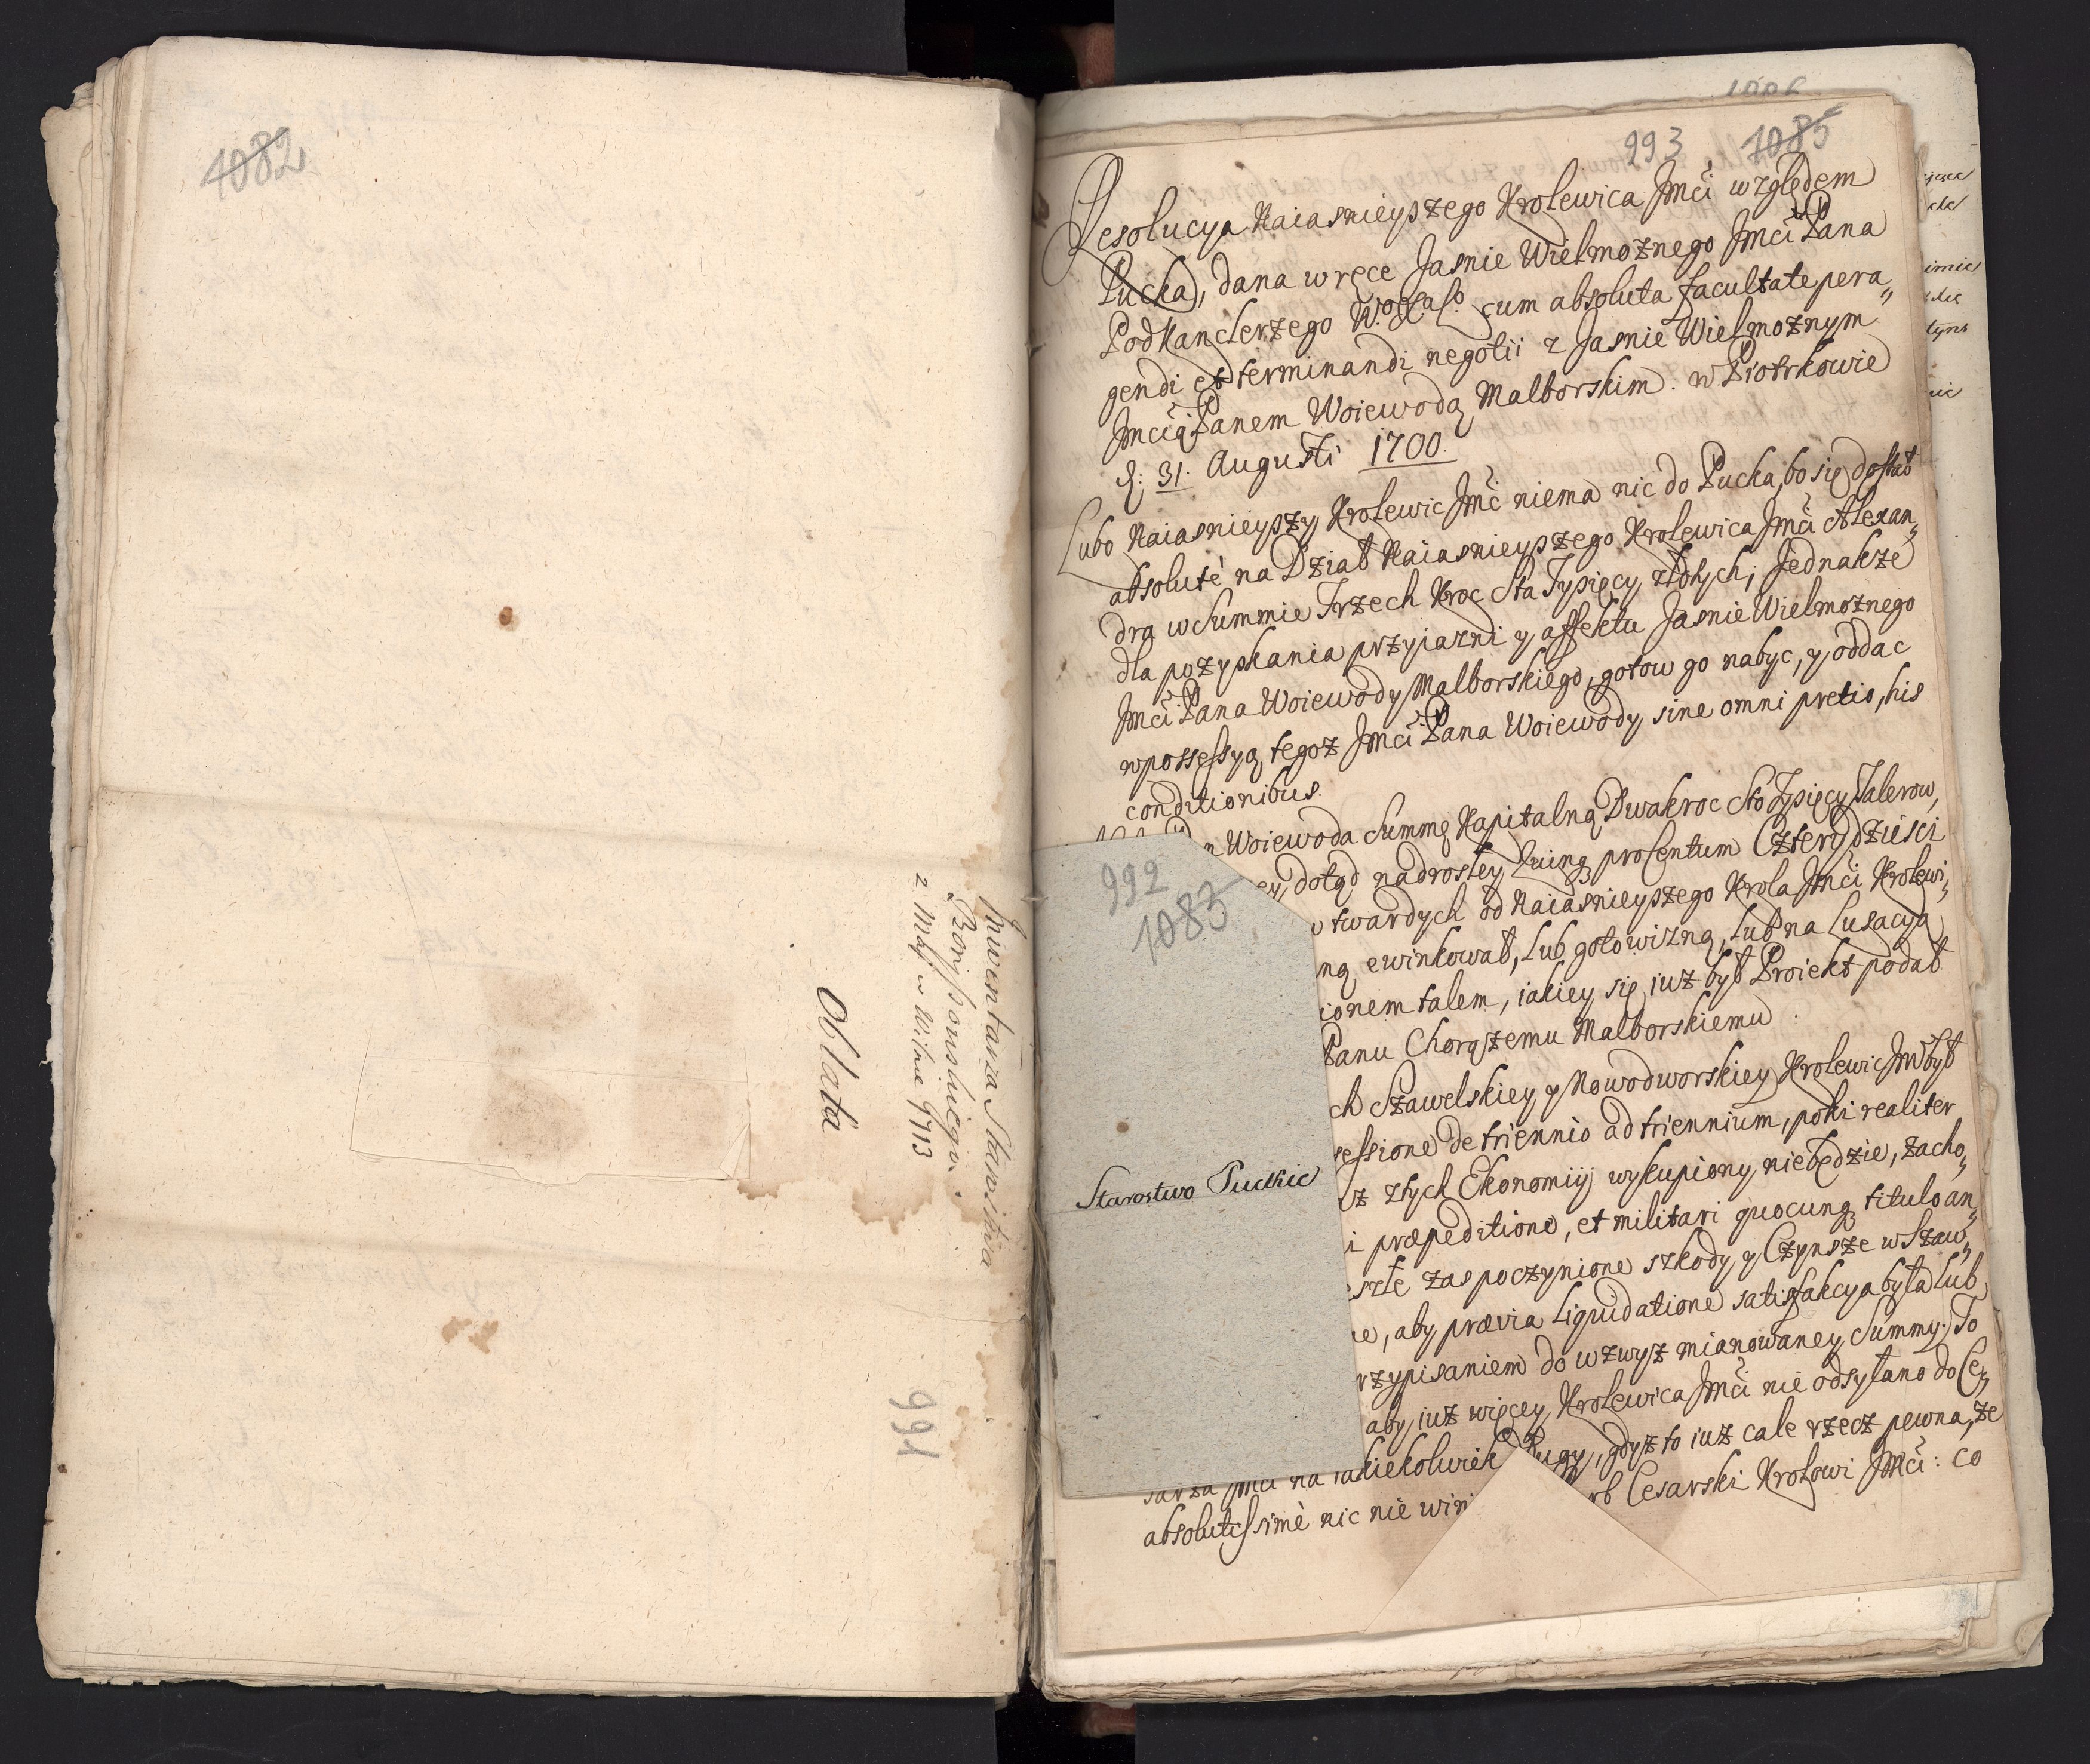 1082
Inwentarza Starostwa
Borysowskiego.
z Maj w Wilnie 1713
Oblata
991
1006
993 1085
Resolucya Naiasnieyszego Krolewica Jmći względem
Pucka, dana w ręce Jasnie Wielmoznego Jmći Pana
Podkanclerzego W. X. L. cum absoluta facultate pera„
gendi et terminandi negotii z Jasnie Wielmoznym
Jmćią Panem Woiewodą Malborskim. w Piotrkowie
d: 31. Augusti 1700.
Lubo Naiasnieyszy Krolewic Jmć niema nic do Pucka, bo się dostał
absolutè na Dział Naiasnieyszego Krolewica Jmći Alexan„
dra w Summie Trzech Kroc Sta Tysięcy złotych; Jednakze
dla pozyskania przyjazni y affektu Jasnie Wielmoznego
Jmći Pana Woiewody Malborskiego, gotow go nabyc, y oddac
w possessyą tegoz Jmći Pana Woiewody sine omni pretio, his
conditionibus.
Woiewoda Summę Kapitalną Dwakroc Sto Tysięcy Talerow,
ey dotąd nadrosłey quinq procentum Czterydziesci
twardych od Naiasnieyszego Krola Jmći Krolewi„
ną ewinkował, lub gotowizną, lub na Lusacyą
ionem talem, iakiey się iuz był Proiekt podał
Panu Chorązemu Malborskiemu.
ch Szawelskiey y Nowodworskiey Krolewic Jmć był
sessione de triennio ad triennium, poki realiter
z tych Ekonomiy wykupiony niebędzie, zacho„
i præpeditione, et militari quocunq titulo an„
eszłe zas poczynione szkody y Czynsze w Szaw„
e, aby prævia Liquidatione satisfakcya była lub
rzypisaniem do wzwyz mianowaney Summy. To
aby iuz więcey Krolewica Jmći nie odsyłano do Ce„
sarza Jmći na iakiekolwiek Długi, gdyz to iuz cale rzecz pewna, ze
absolutissimè nic nie wini rb Cesarski Krolowi Jmći: co
992
1083
Starostwo Puckie